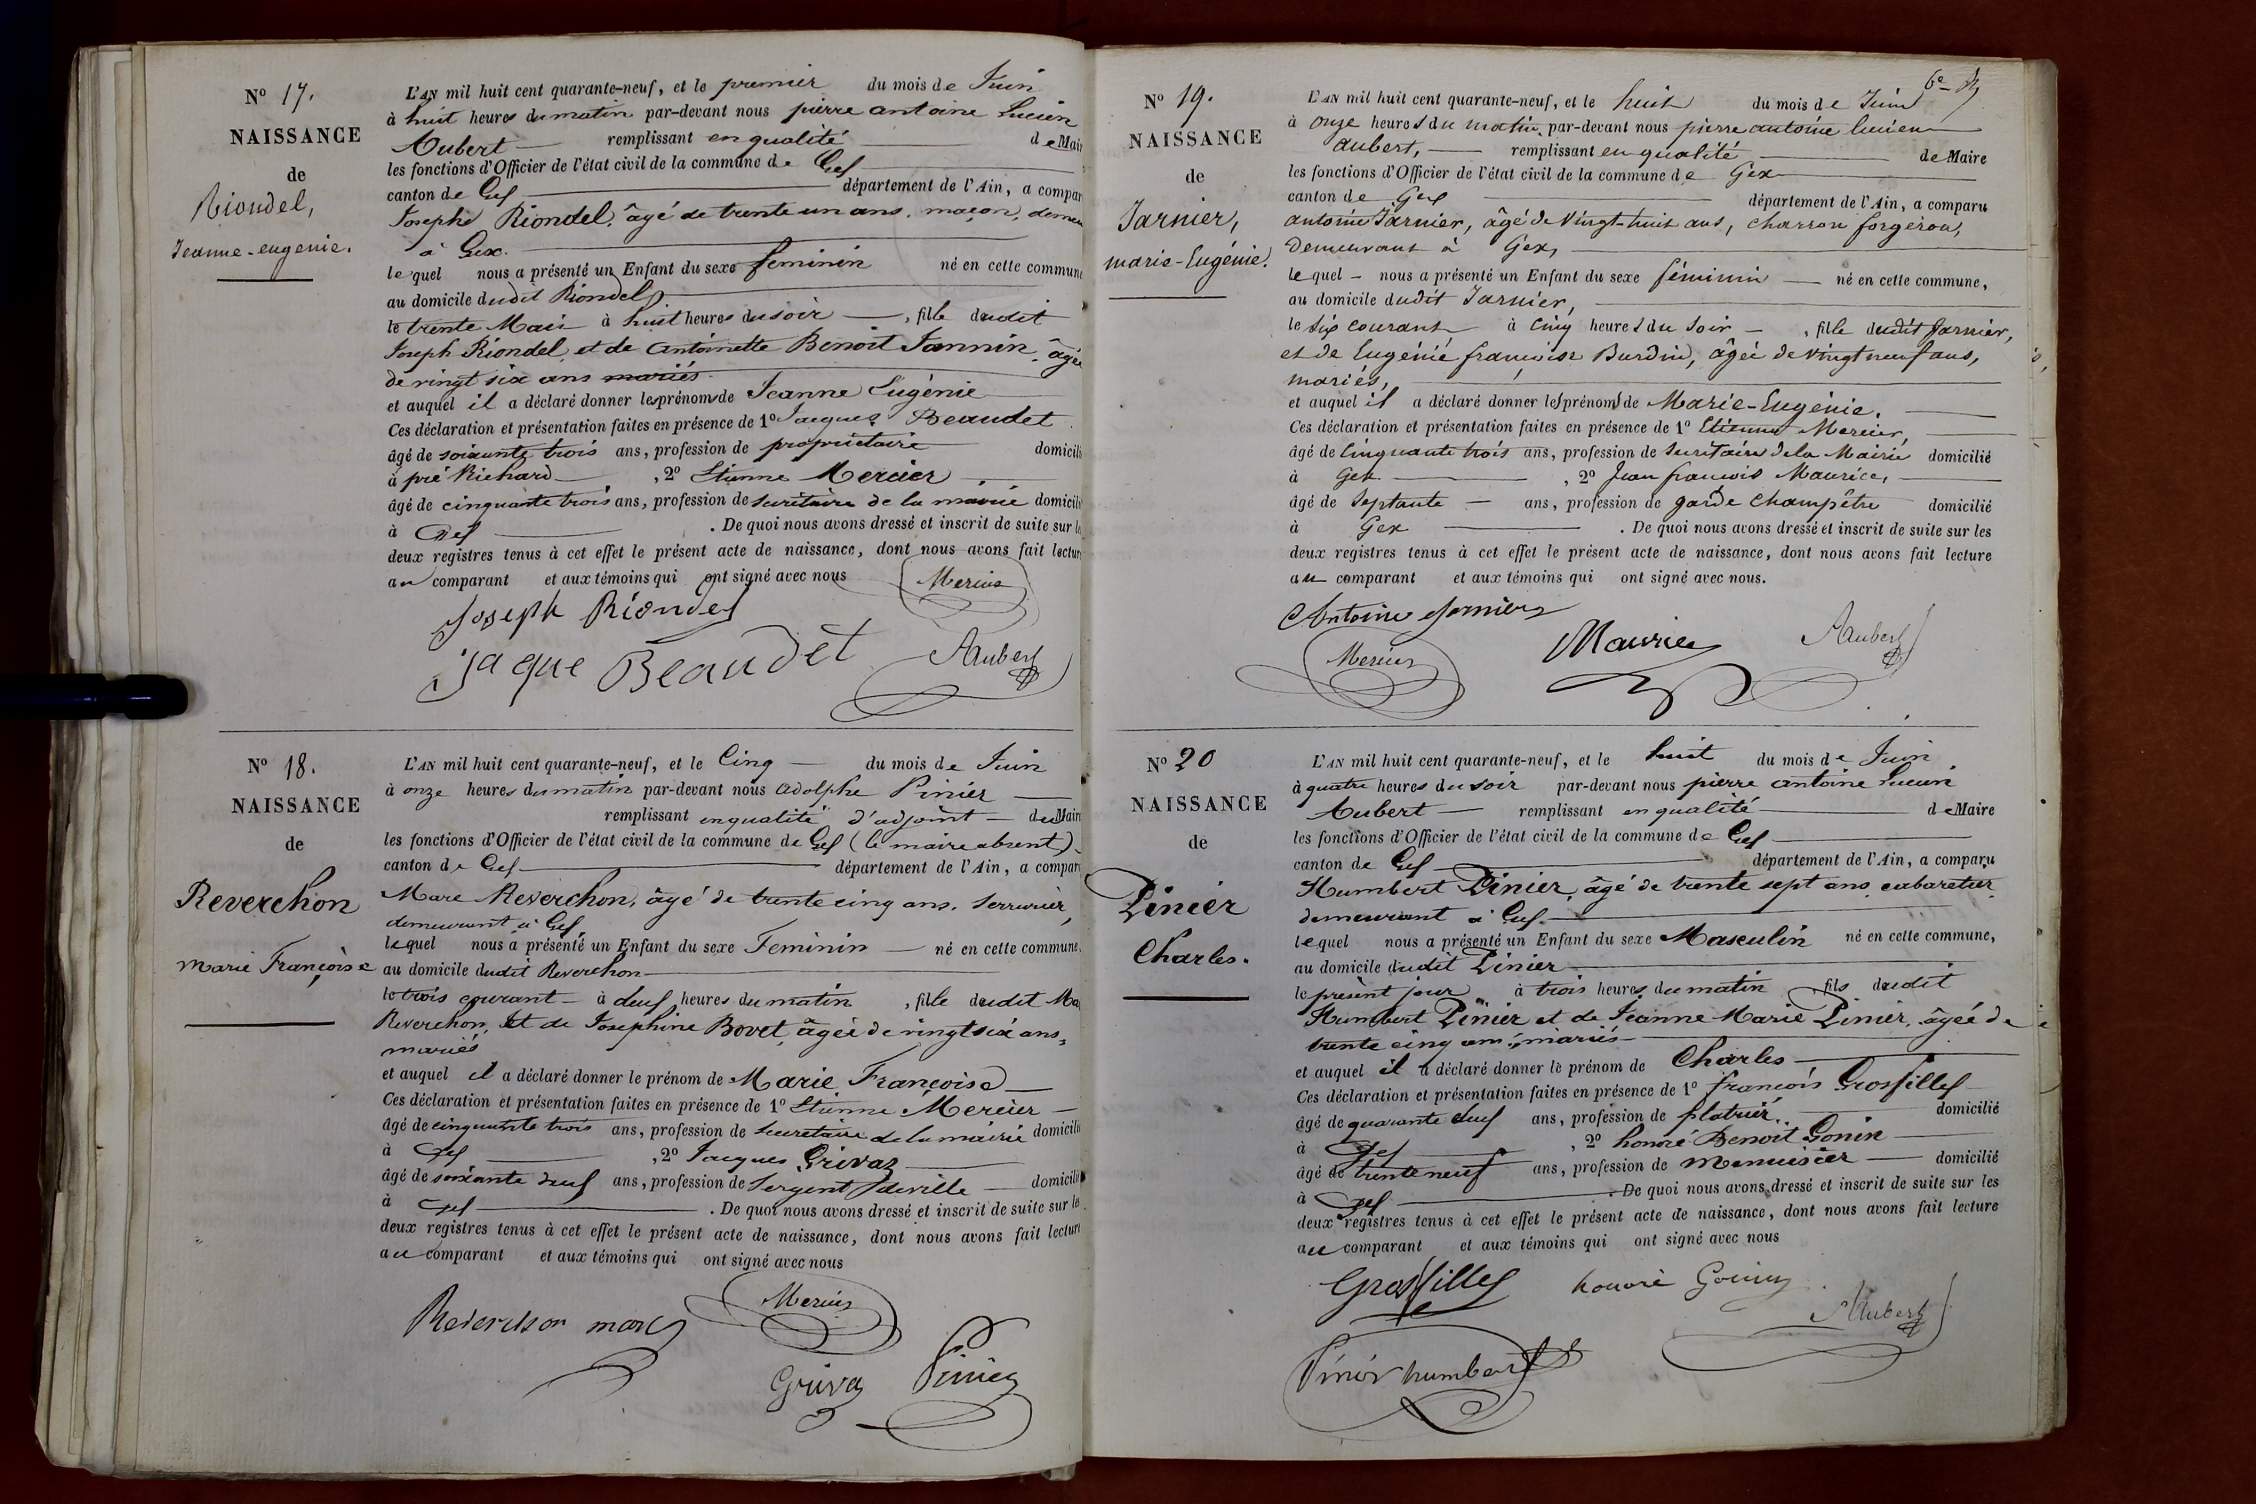 Nº 17.
NAISSANCE
de
Riondel,
Jeanne-eugenie.
L'AN mil huit cent quarante-neuf, et le premier du mois de Juin
à huit heures du matin par-devant nous pierre antoine Lucien
Aubert remplissant en qualité de Mair
les fonctions d'Officier de l'état civil de la commune de Gex
canton de Gex département de l'Ain, a compar
Josephe Riondel, âgé de trente un ans, maçon, demeu
à Gex.
lequel nous a présenté un Enfant du sexe feminin né en cette commune
au domicile dudit Riondel
le trente Mai à huit heures du soir, fille dudit
Joseph Riondel et de Antoinette Benoit Jannin, âgée
de vingt six ans mariés
et auquel il a déclaré donner les prénoms de Jeanne Eugénie
Ces déclaration et présentation faites en présence de 1º Jacques Beaudet
âgé de soixante trois ans, profession de propriétaire domicili
à pré Richard, 2º Etienne Mercier
âgé de cinquante trois ans, profession de secrétaire de la mairie domicili
à Gex. De quoi nous avons dressé et inscrit de suite sur le
deux registres tenus à cet effet le présent acte de naissance, dont nous avons fait lectur
au comparant et aux témoins qui ont signé avec nous
Mercier
Joseph Riondel
jaque Beaudet
Aubert
Nº 18.
NAISSANCE
de
Reverchon
Marie Françoise
L'AN mil huit cent quarante-neuf, et le Cinq du mois de Juin
à onze heures du matin par-devant nous adolphe Pinier
remplissant en qualité d'adjoint du Mair
les fonctions d'Officier de l'état civil de la commune de Gex (le maire absent)
canton de Gex département de l'Ain, a compar
Marc Reverchon, âgé de trente cinq ans, serrurier,
demeurant à Gex,
lequel nous a présenté un Enfant du sexe Feminin né en cette commune
au domicile dudit Reverchon
le trois courant à deux heures du matin, fille dudit Ma
Reverchon, et de Josephine Bovet, âgée de vingt six ans,
mariés
et auquel il a déclaré donner le prénom de Marie Françoise
Ces déclaration et présentation faites en présence de 1º Etienne Mercier
âgé de cinquante trois ans, profession de secretaire de la mairie domicili
à Gex, 2º Jacques Grivaz
âgé de soixante deux ans, profession de Sergent de ville domicili
à Gex. De quoi nous avons dressé et inscrit de suite sur les
deux registres tenus à cet effet le présent acte de naissance, dont nous avons fait lectur
au comparant et aux témoins qui ont signé avec nous
Mercier
Reverchon marc
Grivaz
Pinier
6e
Nº 19.
NAISSANCE
de
Jarnier,
marie-Eugénie.
L'AN mil huit cent quarante-neuf, et le huit du mois de Juin
à onze heures du matin par-devant nous pierre antoine lucien
aubert, remplissant en qualité de Maire
les fonctions d'Officier de l'état civil de la commune de Gex
canton de Gex département de l'Ain, a comparu
antoine Jarnier, âgé de vingt-huit ans, charron forgeron,
demeurant à Gex,
lequel nous a présenté un Enfant du sexe féminin né en cette commune,
au domicile dudit Jarnier,
le six courant à cinq heures du soir, fille dudit Jarnier,
et de Eugénie françoise Burdin, âgée de vingt neuf ans,
mariés,
et auquel il a déclaré donner les prénoms de Marie-Eugénie.
Ces déclaration et présentation faites en présence de 1º Etienne Mercier,
âgé de Cinquante trois ans, profession de Secrétaire de la Mairie domicilié
à Gex, 2º Jean françois Maurice,
âgé de Septante ans, profession de garde Champêtre domicilié
à Gex. De quoi nous avons dressé et inscrit de suite sur les
deux registres tenus à cet effet le présent acte de naissance, dont nous avons fait lecture
au comparant et aux témoins qui ont signé avec nous.
Antoine Jarnier
Mercier
Maurice
Aubert
Nº 20
NAISSANCE
de
Pinier
Charles.
L'AN mil huit cent quarante-neuf, et le huit du mois de Juin
à quatre heures du soir par-devant nous pierre antoine Lucien
Aubert remplissant en qualité de Maire
les fonctions d'Officier de l'état civil de la commune de Gex
canton de Gex département de l'Ain, a comparu
Humbert Pinier, âgé de trente sept ans cabaretier
demeurant à Gex.
lequel nous a présenté un Enfant du sexe Masculin né en cette commune,
au domicile dudit Pinier
le présent jour à trois heures du matin, fils dudit
Humbert Pinier et de Jeanne Marie Pinier, âgée de
trente cinq ans, mariés
et auquel il a déclaré donner le prénom de Charles
Ces déclaration et présentation faites en présence de 1º françois Grosfillex
âgé de quarante deux ans, profession de platrier domicilié
à Gex, 2º honoré Benoit Gonin
âgé de trente neuf ans, profession de Menuisier domicilié
à Gex. De quoi nous avons dressé et inscrit de suite sur les
deux registres tenus à cet effet le présent acte de naissance, dont nous avons fait lecture
au comparant et aux témoins qui ont signé avec nous
Grosfillex
honoré Gonin
Aubert
Pinier humbert